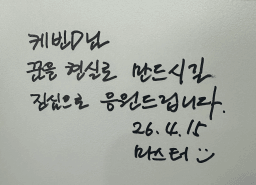 케빈D님
꿈을 현실로 만드시길
진심으로 응원드립니다.
26.4.15
마스터